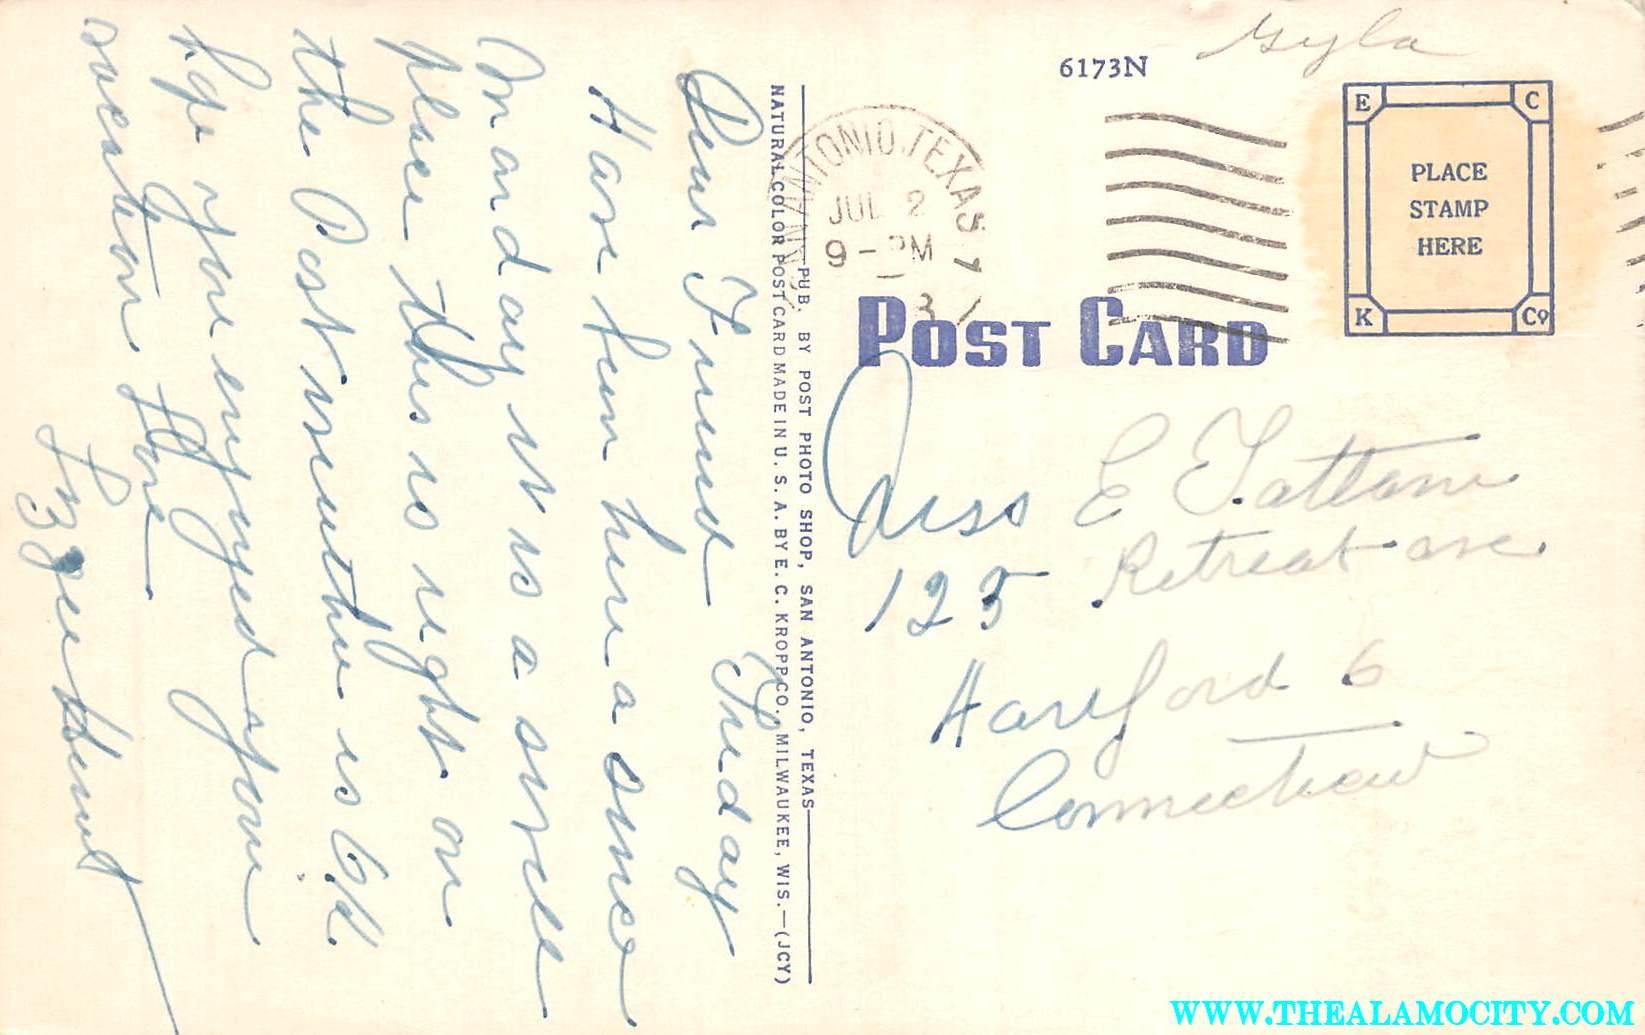 Gyla
6173N
PLACE
STAMP
HERE
E C
K Cº
ANTONIO, TEXAS
JUL 2
9 - PM
POST CARD
Miss E
125 Retreat ave
Hartford 6
Connecticut
PUB. BY POST PHOTO SHOP, SAN ANTONIO, TEXAS
NATURAL COLOR POST CARD MADE IN U. S. A. BY E. C. KROPP CO., MILWAUKEE, WIS.—(JCY)
Dear Friend Friday
Have been here a since
Monday it is a swell
place this is right on
the Post weather is Gd.
hope you enjoyed your
vacation Love
WWW.THEALAMOCITY.COM